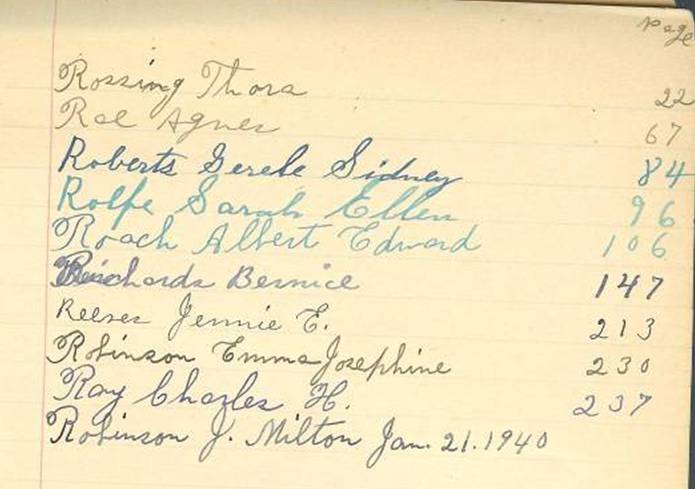 Page
Rossing Thora 22
Rae Agnes 67
Roberts Gerele Sidney 84
Rolfe Sarah Ellen 96
Roach Albert Edward 106
Richards Bernice 147
Reeses Jennie E. 213
Robinson Emma Josephine 230
Ray Charles H. 237
Robinson J. Milton Jan. 21. 1940